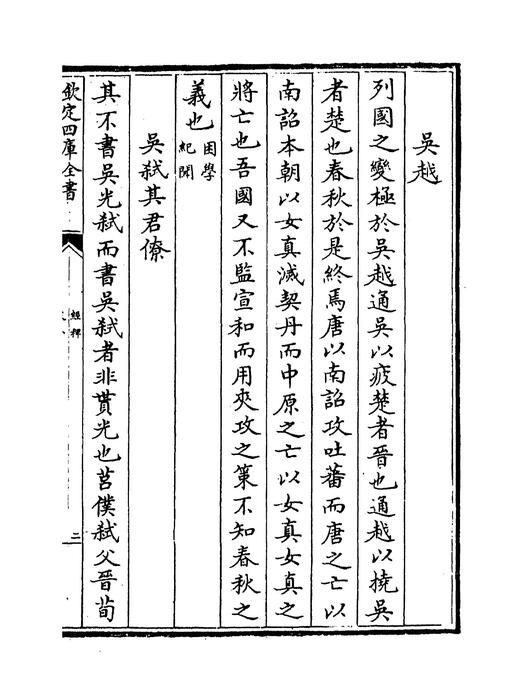 吳越
列國之變極於吳越通吳以疲楚者晉也通越以撓吳
者楚也春秋於是終焉唐以南詔攻吐蕃而唐之亡以
南詔本朝以女真滅契丹而中原之亡以女真女真之
將亡也吾國又不監宣和而用夾攻之策不知春秋之
義也困學
紀聞
吳弒其君僚
其不書吳光弒而書吳弒者非貰光也莒僕弒父晉荀
欽定四庫全書
經稗
二